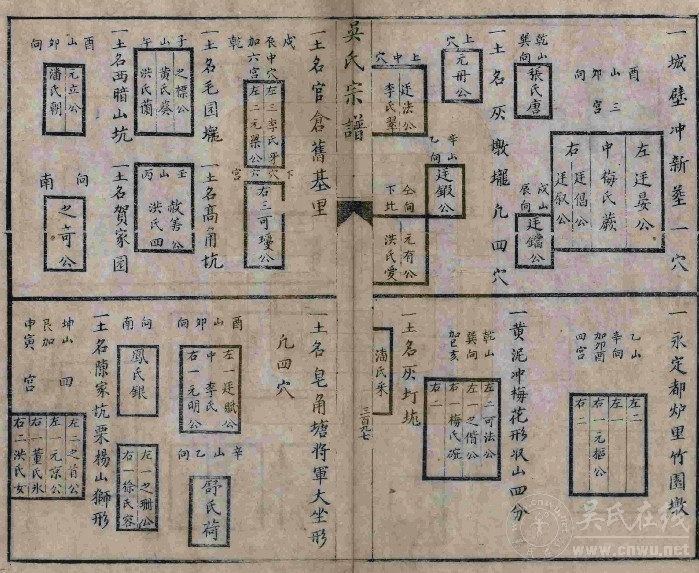 一城壁冲新塋一穴
酉山卯向
三宮
左廷晏公
中梅氏蕨
右廷倡公
廷叙公
乾山
巽向
張氏唐
戌山
辰向
廷鐺公
一土名灰墩壠凢四穴
上穴
元册公
辛山
乙向
廷鍛公
中穴
廷法公
李氏翠
仝向
下比
元有公
洪氏愛
一永定都炉里竹園墩
乙山
辛向
加卯酉
四宮
左二
左一
右一元樞公
右二
一黄泥冲梅花形収山四分
乾山
巽向
加巳亥
左二可法公
左一之偕公
右一梅氏砬
右二
一土名灰圢坑
潘氏釆
吳氏宗譜
三百九七
一土名官倉舊基里
戌
辰中穴
加六宮
乾
左三李氏牙
左二元梁公
下穴
六宮
右三可璦公
一土名毛园壠
子山午
之標公
黄氏葵
洪氏蘭
一土名高角坑
壬山丙
敇善公
洪氏四
一土名西暗山坑
酉山卯向
元立公
潘氏朝
一土名賀家园
向南
之奇公
一土名皂角塘將軍大坐形
凢四穴
酉山卯向
左一廷賦公
中李氏
右一元明公
辛山乙向
舒氏荷
向南
鳳氏銀
左一之珊公
右一徐氏容
一土名陳家坑栗楊山獅形
坤山
艮加
申寅
四宮
左二之首公
左一元京公
右一董氏氷
右二洪氏女
吴氏在线
www.cnwu.net